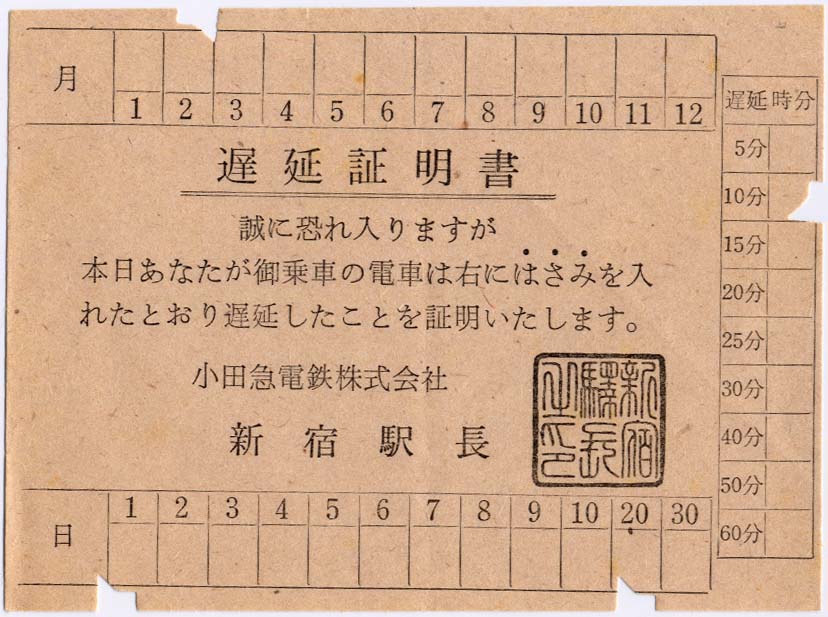 月 1 2 3 4 5 6 7 8 9 10 11 12
遅延証明書
誠に恐れ入りますが
本日あなたが御乗車の電車は右にはさみを入
れたとおり遅延したことを証明いたします。
小田急電鉄株式会社
新宿駅長
新宿驛長之印
日 1 2 3 4 5 6 7 8 9 10 20 30
遅延時分
5分
10分
15分
20分
25分
30分
40分
50分
60分